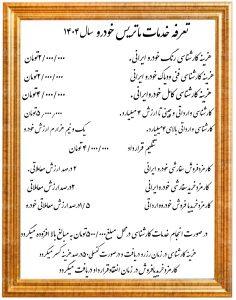 تعرفه خدمات ماتریس خودرو سال ۱۴۰۴
هزینه کارشناسی رنگ خودرو ایرانی. ۲/۰۰۰/۰۰۰تومان
هزینه کارشناسی فنی و دیاگ خودرو ایرانی. ۲/۰۰۰/۰۰۰تومان
هزینه کارشناسی کامل خودرو ایرانی. ۴/۰۰۰/۰۰۰تومان
کارشناسی وارداتی و چینی تا ارزش ۴میلیارد. ۵/۰۰۰/۰۰۰تومان
کارشناسی وارداتی بالای ۴میلیارد. یک و نیم هزارم ارزش خودرو
تنظیم قرارداد ۴/۰۰۰/۰۰۰تومان
کارمزد فروش سفارشی خودرو ایرانی ۲درصد ارزش معاملاتی.
کارمزد خرید سفارشی خودرو ایرانی ۲درصد ارزش معاملاتی
کارمزد خرید یا فروش خودرو وارداتی ۱/۵درصد ارزش معاملاتی خودرو
در صورت انجام خدمات کارشناسی در محل مبلغ ۵۰۰/۰۰۰تومان به مبالغ بالا افزوده میگردد
هزینه کارشناسی در زمان رزرو دریافت و در صورت کنسلی ۵۰درصد هزینه کسر میگردد
کارمزد خرید یا فروش در زمان انعقاد قرارداد دریافت میگردد